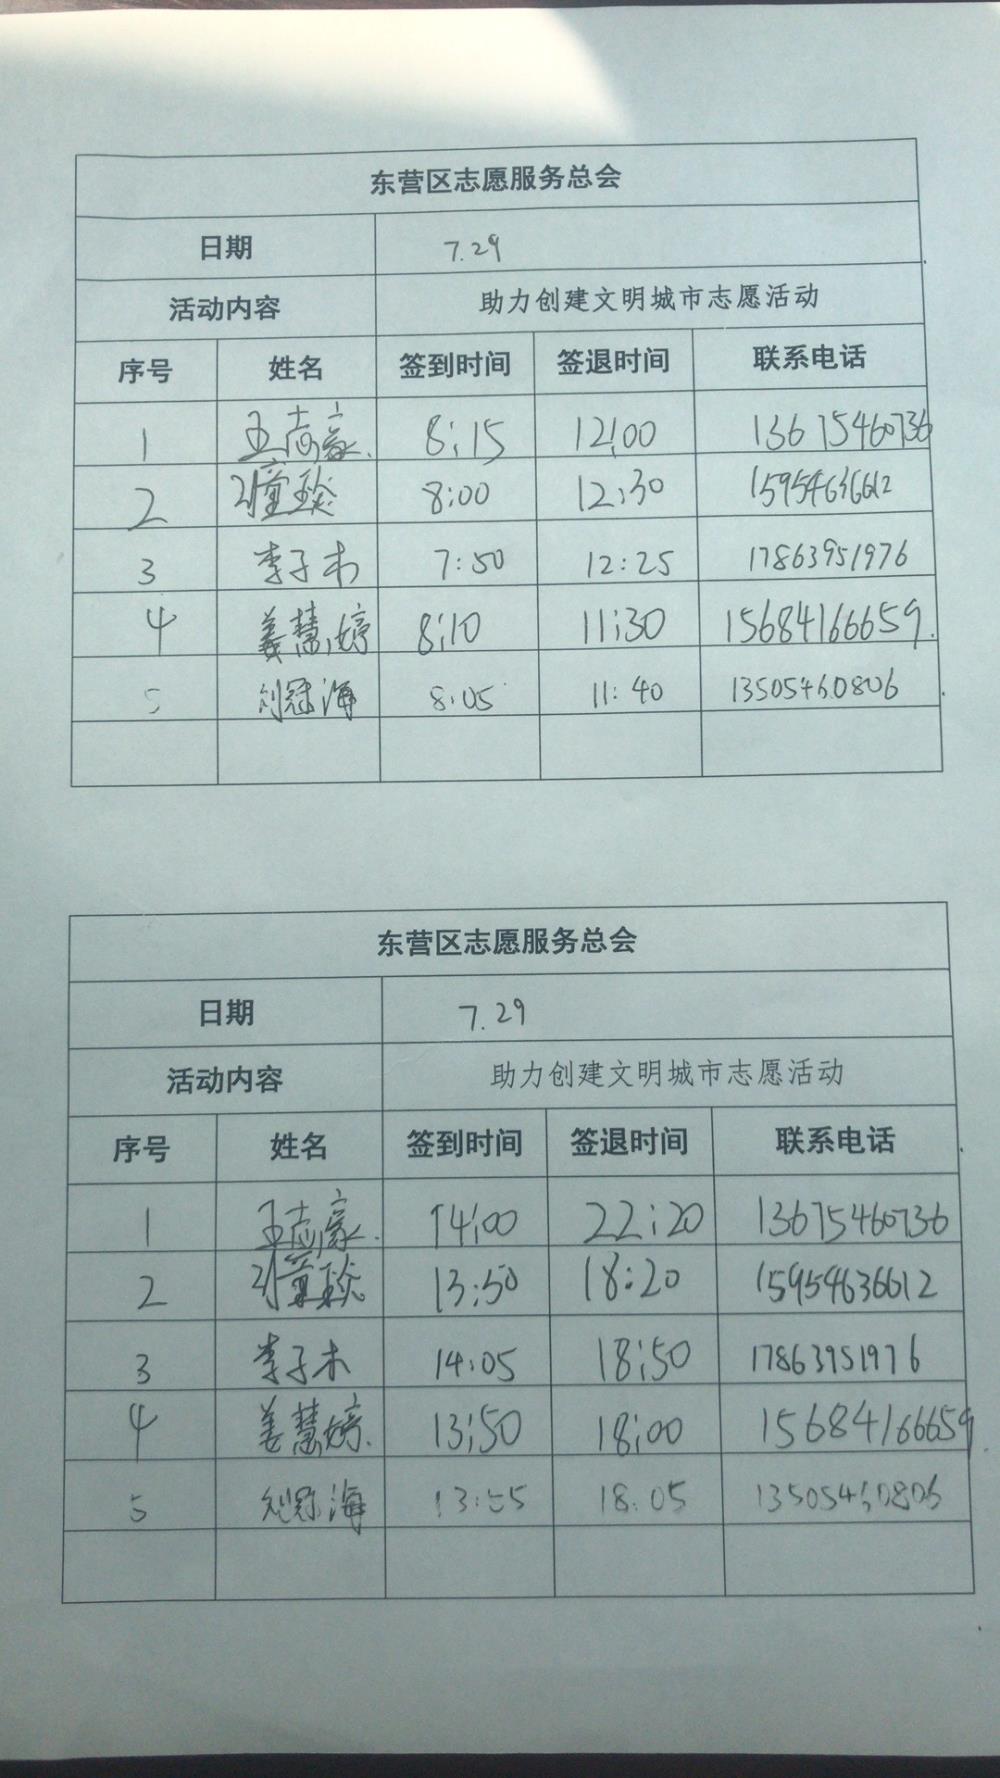 东营区志愿服务总会
日期 7.29
活动内容 助力创建文明城市志愿活动
序号 姓名 签到时间 签退时间 联系电话
1 王志豪 8:15 12:00 13675460736
2 8:00 12:30 15954636612
3 李子木 7:50 12:25 17863951976
4 姜慧婷 8:10 11:30 15684166659
5 刘冠海 8:05 11:40 13505460806
东营区志愿服务总会
日期 7.29
活动内容 助力创建文明城市志愿活动
序号 姓名 签到时间 签退时间 联系电话
1 王志豪 14:00 22:20 13675460736
2 13:50 18:20 15954636612
3 李子木 14:05 18:50 17863951976
4 姜慧婷 13:50 18:00 15684166659
5 刘冠海 13:55 18:05 13505460806